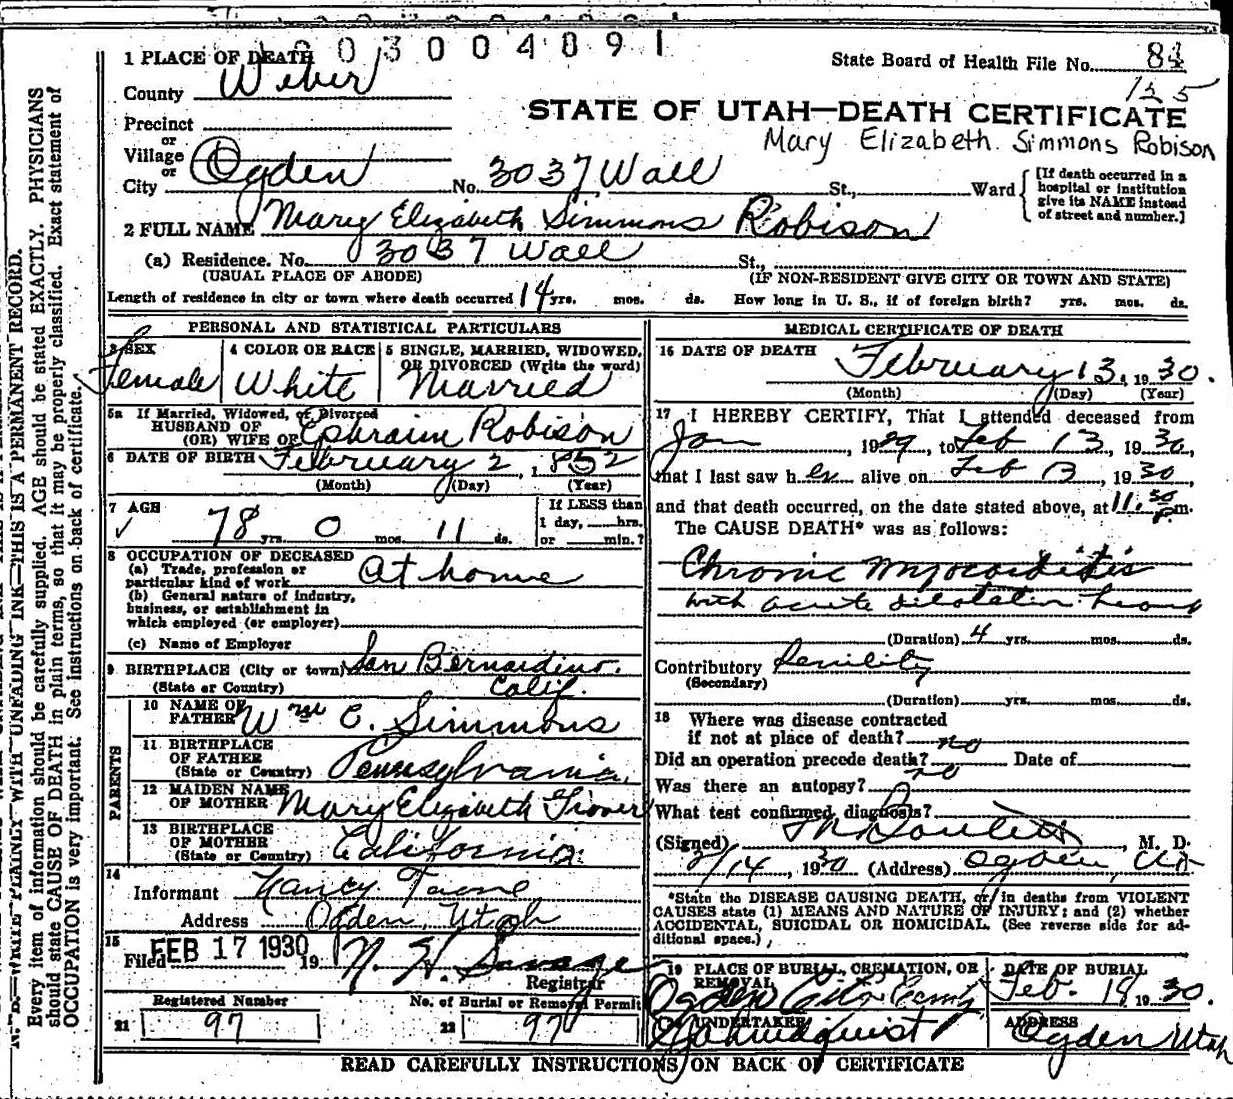 003004091
1 PLACE OF DEATH
State Board of Health File No. 84
125
County Weber
STATE OF UTAH—DEATH CERTIFICATE
Precinct
Mary Elizabeth Simmons Robison
or
Village
or
City Ogden No. 3037 Wall St., Ward
[If death occurred in a hospital or institution give its NAME instead of street and number.]
2 FULL NAME Mary Elizabeth Simmons Robison
(a) Residence. No. 3037 Wall St.,
(USUAL PLACE OF ABODE) (IF NON-RESIDENT GIVE CITY OR TOWN AND STATE)
Length of residence in city or town where death occurred 14 yrs. mos. ds. How long in U. S., if of foreign birth? yrs. mos. ds.
PERSONAL AND STATISTICAL PARTICULARS
3 SEX Female
4 COLOR OR RACE White
5 SINGLE, MARRIED, WIDOWED,
OR DIVORCED (Write the word)
Married
5a If Married, Widowed, or Divorced
HUSBAND OF
(OR) WIFE OF Ephraim Robison
6 DATE OF BIRTH February 2, 1852
(Month) (Day) (Year)
7 AGE
78 yrs. 0 mos. 11 ds.
If LESS than
1 day, hrs.
or min.?
8 OCCUPATION OF DECEASED
(a) Trade, profession or
particular kind of work At home
(b) General nature of industry,
business, or establishment in
which employed (or employer)
(c) Name of Employer
9 BIRTHPLACE (City or town) San Bernardino.
(State or Country) Calif.
PARENTS
10 NAME OF
FATHER Wm C. Simmons
11 BIRTHPLACE
OF FATHER
(State or Country) Pennsylvania
12 MAIDEN NAME
OF MOTHER Mary Elizabeth
13 BIRTHPLACE
OF MOTHER
(State or Country) California
14
Informant Nancy
Address Ogden, Utah
15
Filed FEB 17 1930 19 N. H. Savage
Registrar
Registered Number
21 97
No. of Burial or Removal Permit
22 97
MEDICAL CERTIFICATE OF DEATH
16 DATE OF DEATH
February 13, 1930.
(Month) (Day) (Year)
17 I HEREBY CERTIFY, That I attended deceased from
Jan, 1929, to Feb 13, 1930,
that I last saw her alive on Feb 13, 1930,
and that death occurred, on the date stated above, at 11.30 p.m.
The CAUSE DEATH* was as follows:
Chronic Myocarditis
with acute dilatation
(Duration) 4 yrs. mos. ds.
Contributory Senility
(Secondary)
(Duration) yrs. mos. ds.
18 Where was disease contracted
if not at place of death? no
Did an operation precede death? no Date of
Was there an autopsy?
What test confirmed diagnosis?
(Signed) M. D.
2/14, 1930 (Address) Ogden, Ut
*State the DISEASE CAUSING DEATH, or in deaths from VIOLENT
CAUSES state (1) MEANS AND NATURE OF INJURY; and (2) whether
ACCIDENTAL, SUICIDAL OR HOMICIDAL. (See reverse side for ad-
ditional space.)
19 PLACE OF BURIAL, CREMATION, OR
REMOVAL
Ogden City Cemty
DATE OF BURIAL
Feb. 1930.
UNDERTAKER
ADDRESS
Ogden Utah
READ CAREFULLY INSTRUCTIONS ON BACK OF CERTIFICATE
N. B.—WRITE PLAINLY WITH UNFADING INK—THIS IS A PERMANENT RECORD.
Every item of information should be carefully supplied. AGE should be stated EXACTLY. PHYSICIANS
should state CAUSE OF DEATH in plain terms, so that it may be properly classified. Exact statement of
OCCUPATION is very important. See instructions on back of certificate.